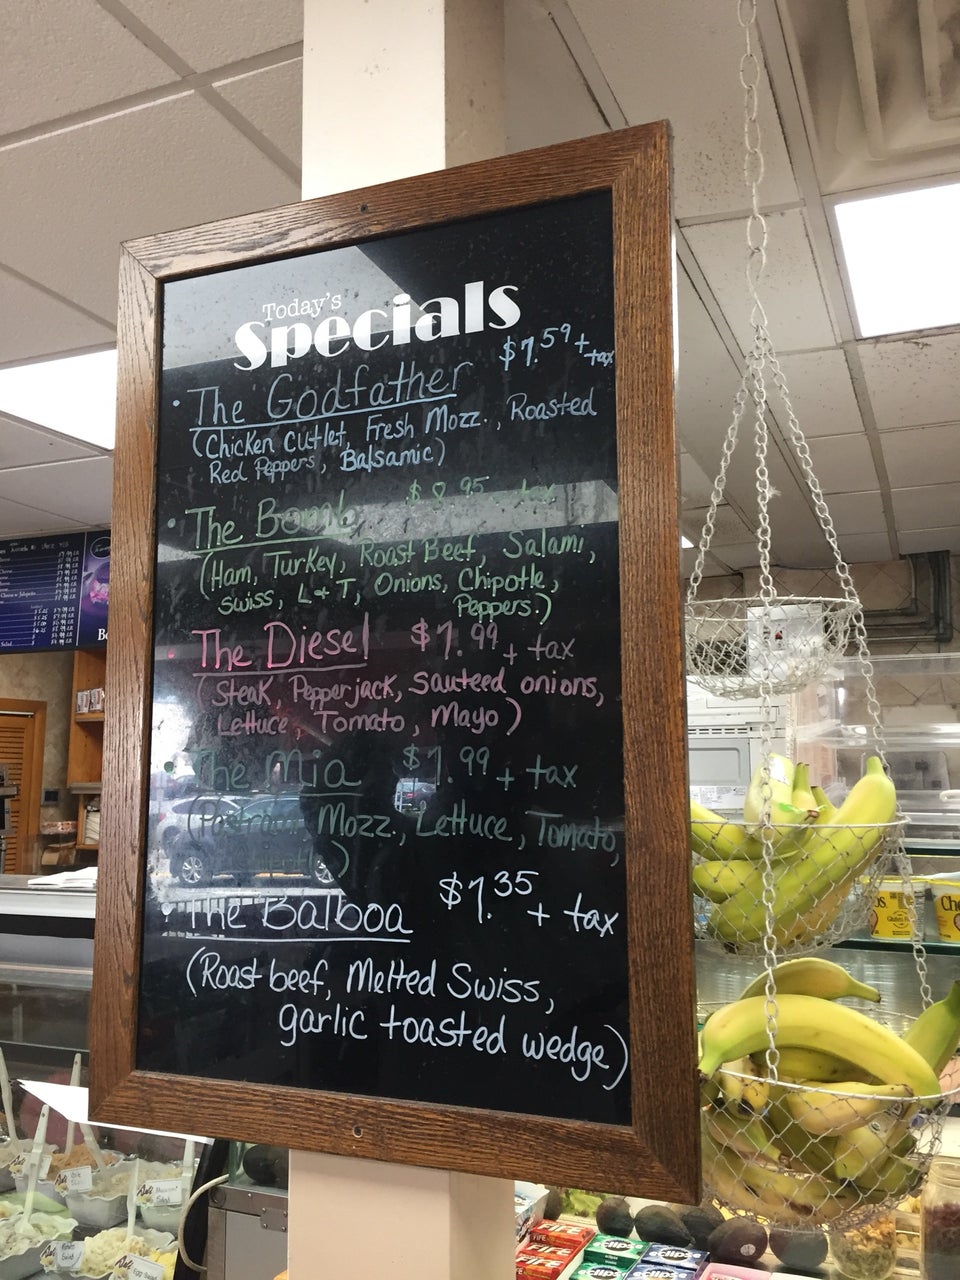 Today's
Specials
• The Godfather $7.59 + tax
(Chicken Cutlet, Fresh Mozz., Roasted
Red Peppers, Balsamic)
• The Bomb $8.95 tax
(Ham, Turkey, Roast Beef, Salami,
Swiss, L & T, Onions, Chipotle,
Peppers.)
• The Diesel $7.99 + tax
(Steak, Pepperjack, Sauteed onions,
Lettuce, Tomato, Mayo)
• The Mia $7.99 + tax
(Pastrami, Mozz., Lettuce, Tomato,
)
The Balboa $7.35 + tax
(Roast beef, Melted Swiss,
garlic toasted wedge)
FIRE
FIRE
eclips
eclips